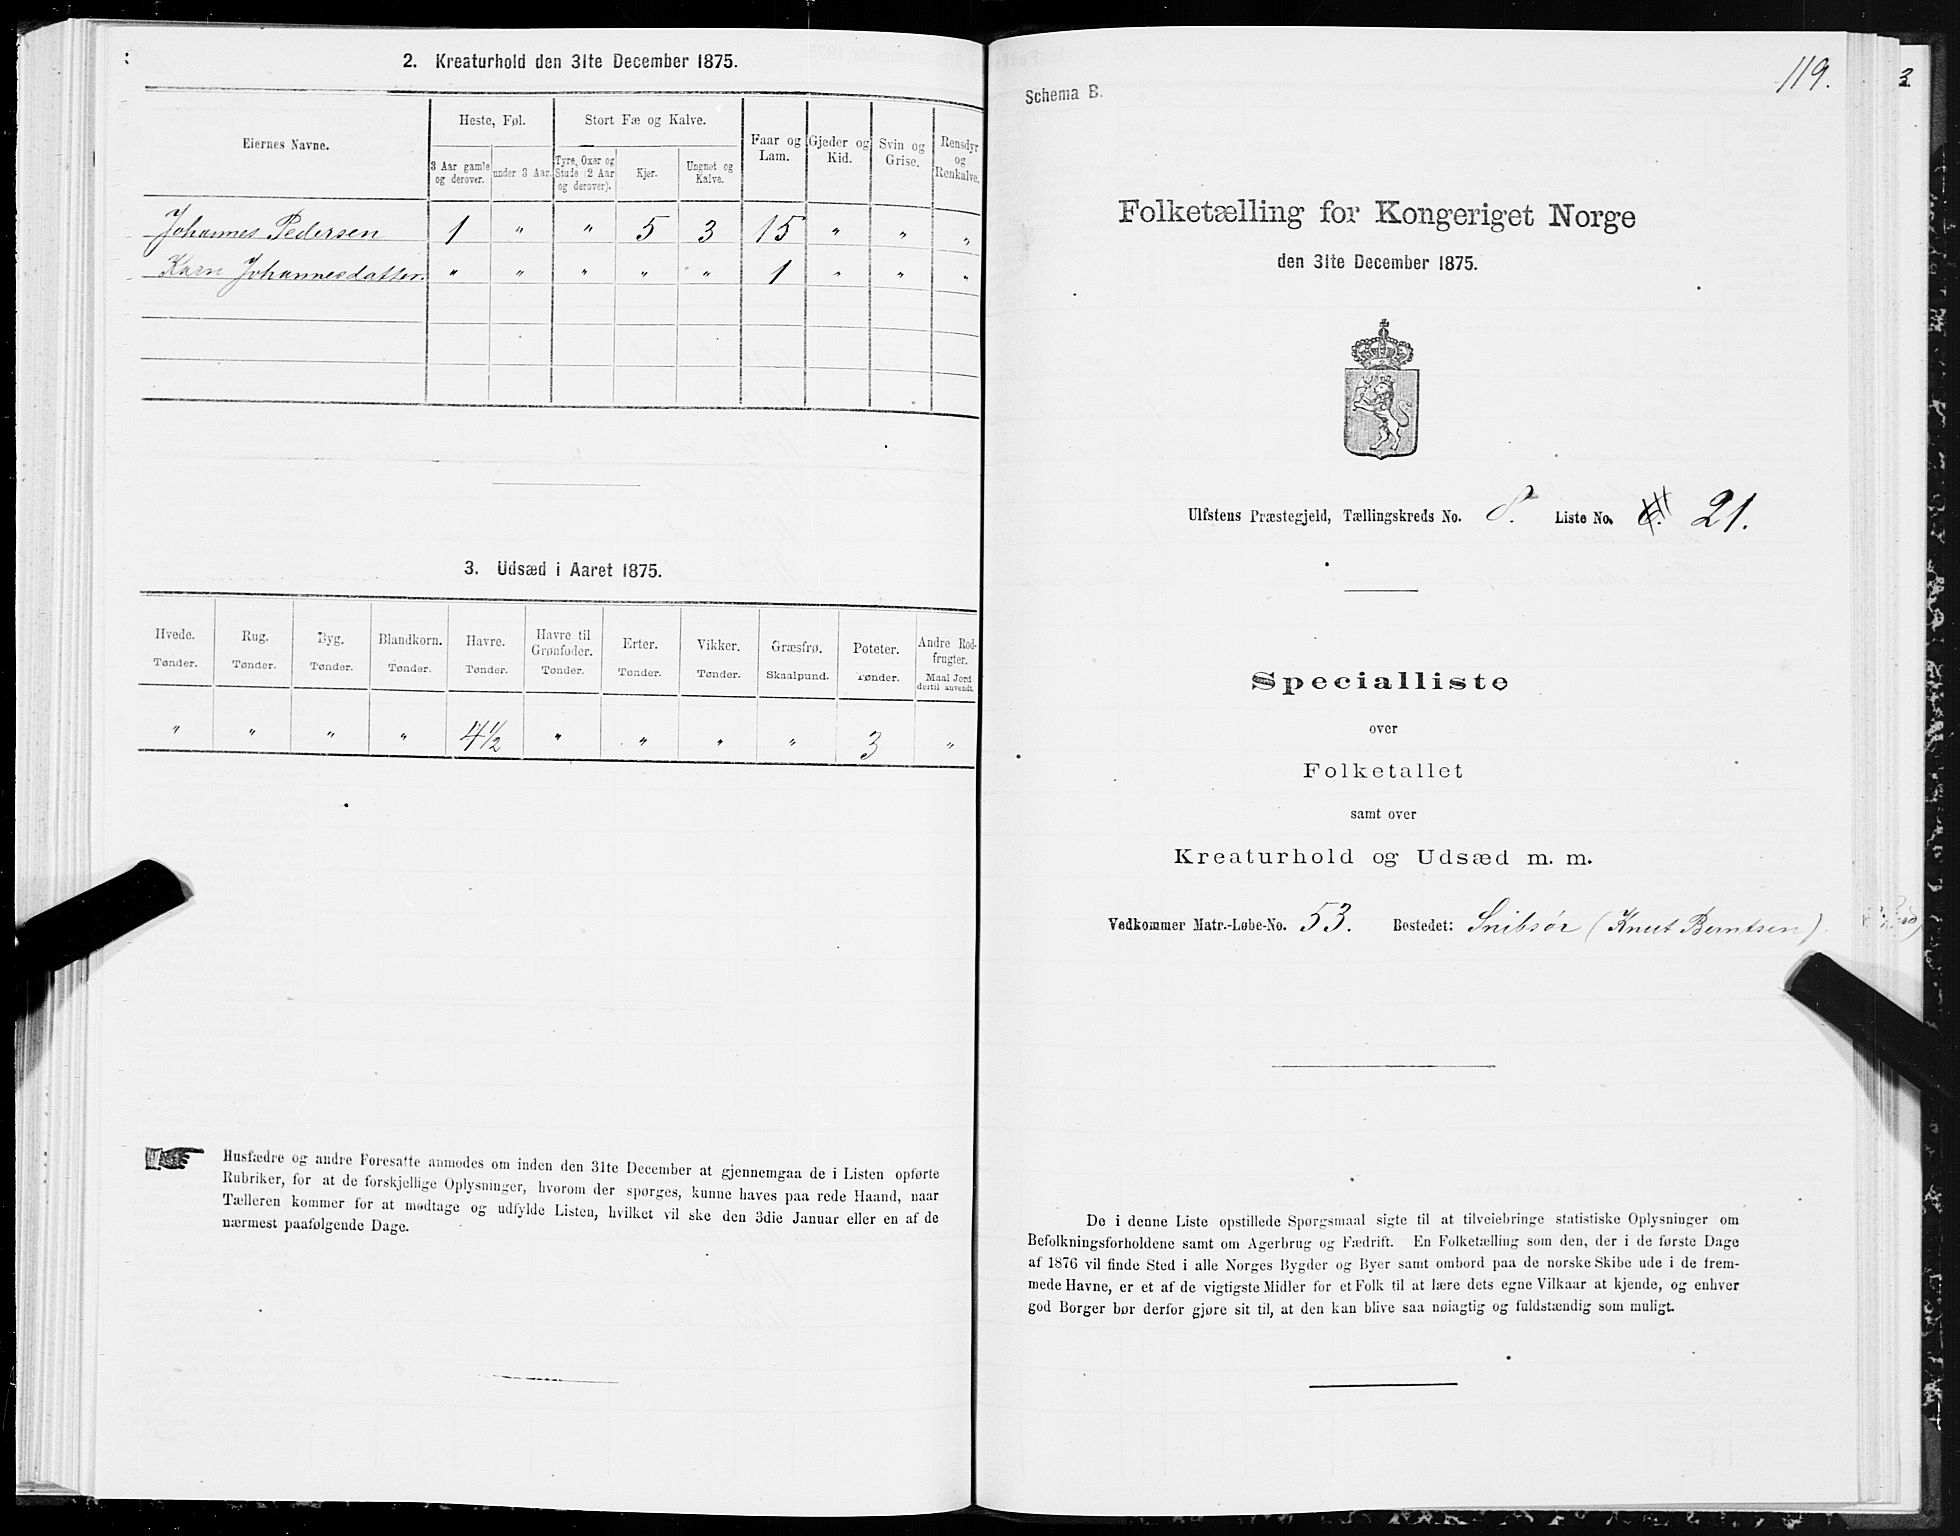 2. Kreaturhold den 31te December 1875.
Eiernes Navne.
Heste, Føl.
Stort Fæ og Kalve.
Faar og Lam.
Gjeder og Kid.
Svin og Grise.
Rensdyr og Renkalve.
3 Aar gamle og derover.
under 3 Aar.
Tyre, Oxer og Stude (2 Aar og derover).
Kjer.
Ungnøt og Kalve.
Johannes Pedersen 1 " " 5 3 15 " " "
Karn Johannesdatter. " " " " " 1 " " "
3. Udsæd i Aaret 1875.
Hvede. Rug. Byg. Blandkorn. Havre. Havre til Grønfoder. Erter. Vikker. Græsfrø. Poteter. Andre Rodfrugter.
Tønder. Tønder. Tønder. Tønder. Tønder. Tønder. Tønder. Tønder. Skaalpund. Tønder. Maal Jord dertil anvendt.
" " " " 4½ " " " " 3 "
Husfædre og andre Foresatte anmodes om inden den 31te December at gjennemgaa de i Listen opførte
Rubriker, for at de forskjellige Oplysninger, hvorom der spørges, kunne haves paa rede Haand, naar
Tælleren kommer for at modtage og udfylde Listen, hvilket vil ske den 3die Januar eller en af de
nærmest paafølgende Dage.
119.
3
Schema B.
Folketælling for Kongeriget Norge
den 31te December 1875.
Ulfstens Præstegjeld, Tællingskreds No. 8. Liste No. 21.
Specialliste
over
Folketallet
samt over
Kreaturhold og Udsæd m. m.
Vedkommer Matr.-Løbe-No. 53. Bostedet: Snibsør (Knut Berntsen)
De i denne Liste opstillede Spørgsmaal sigte til at tilveiebringe statistiske Oplysninger om
Befolkningsforholdene samt om Agerbrug og Fædrift. En Folketælling som den, der i de første Dage
af 1876 vil finde Sted i alle Norges Bygder og Byer samt ombord paa de norske Skibe ude i de frem-
mede Havne, er et af de vigtigste Midler for et Folk til at lære dets egne Vilkaar at kjende, og enhver
god Borger bør derfor gjøre sit til, at den kan blive saa nøiagtig og fuldstændig som muligt.